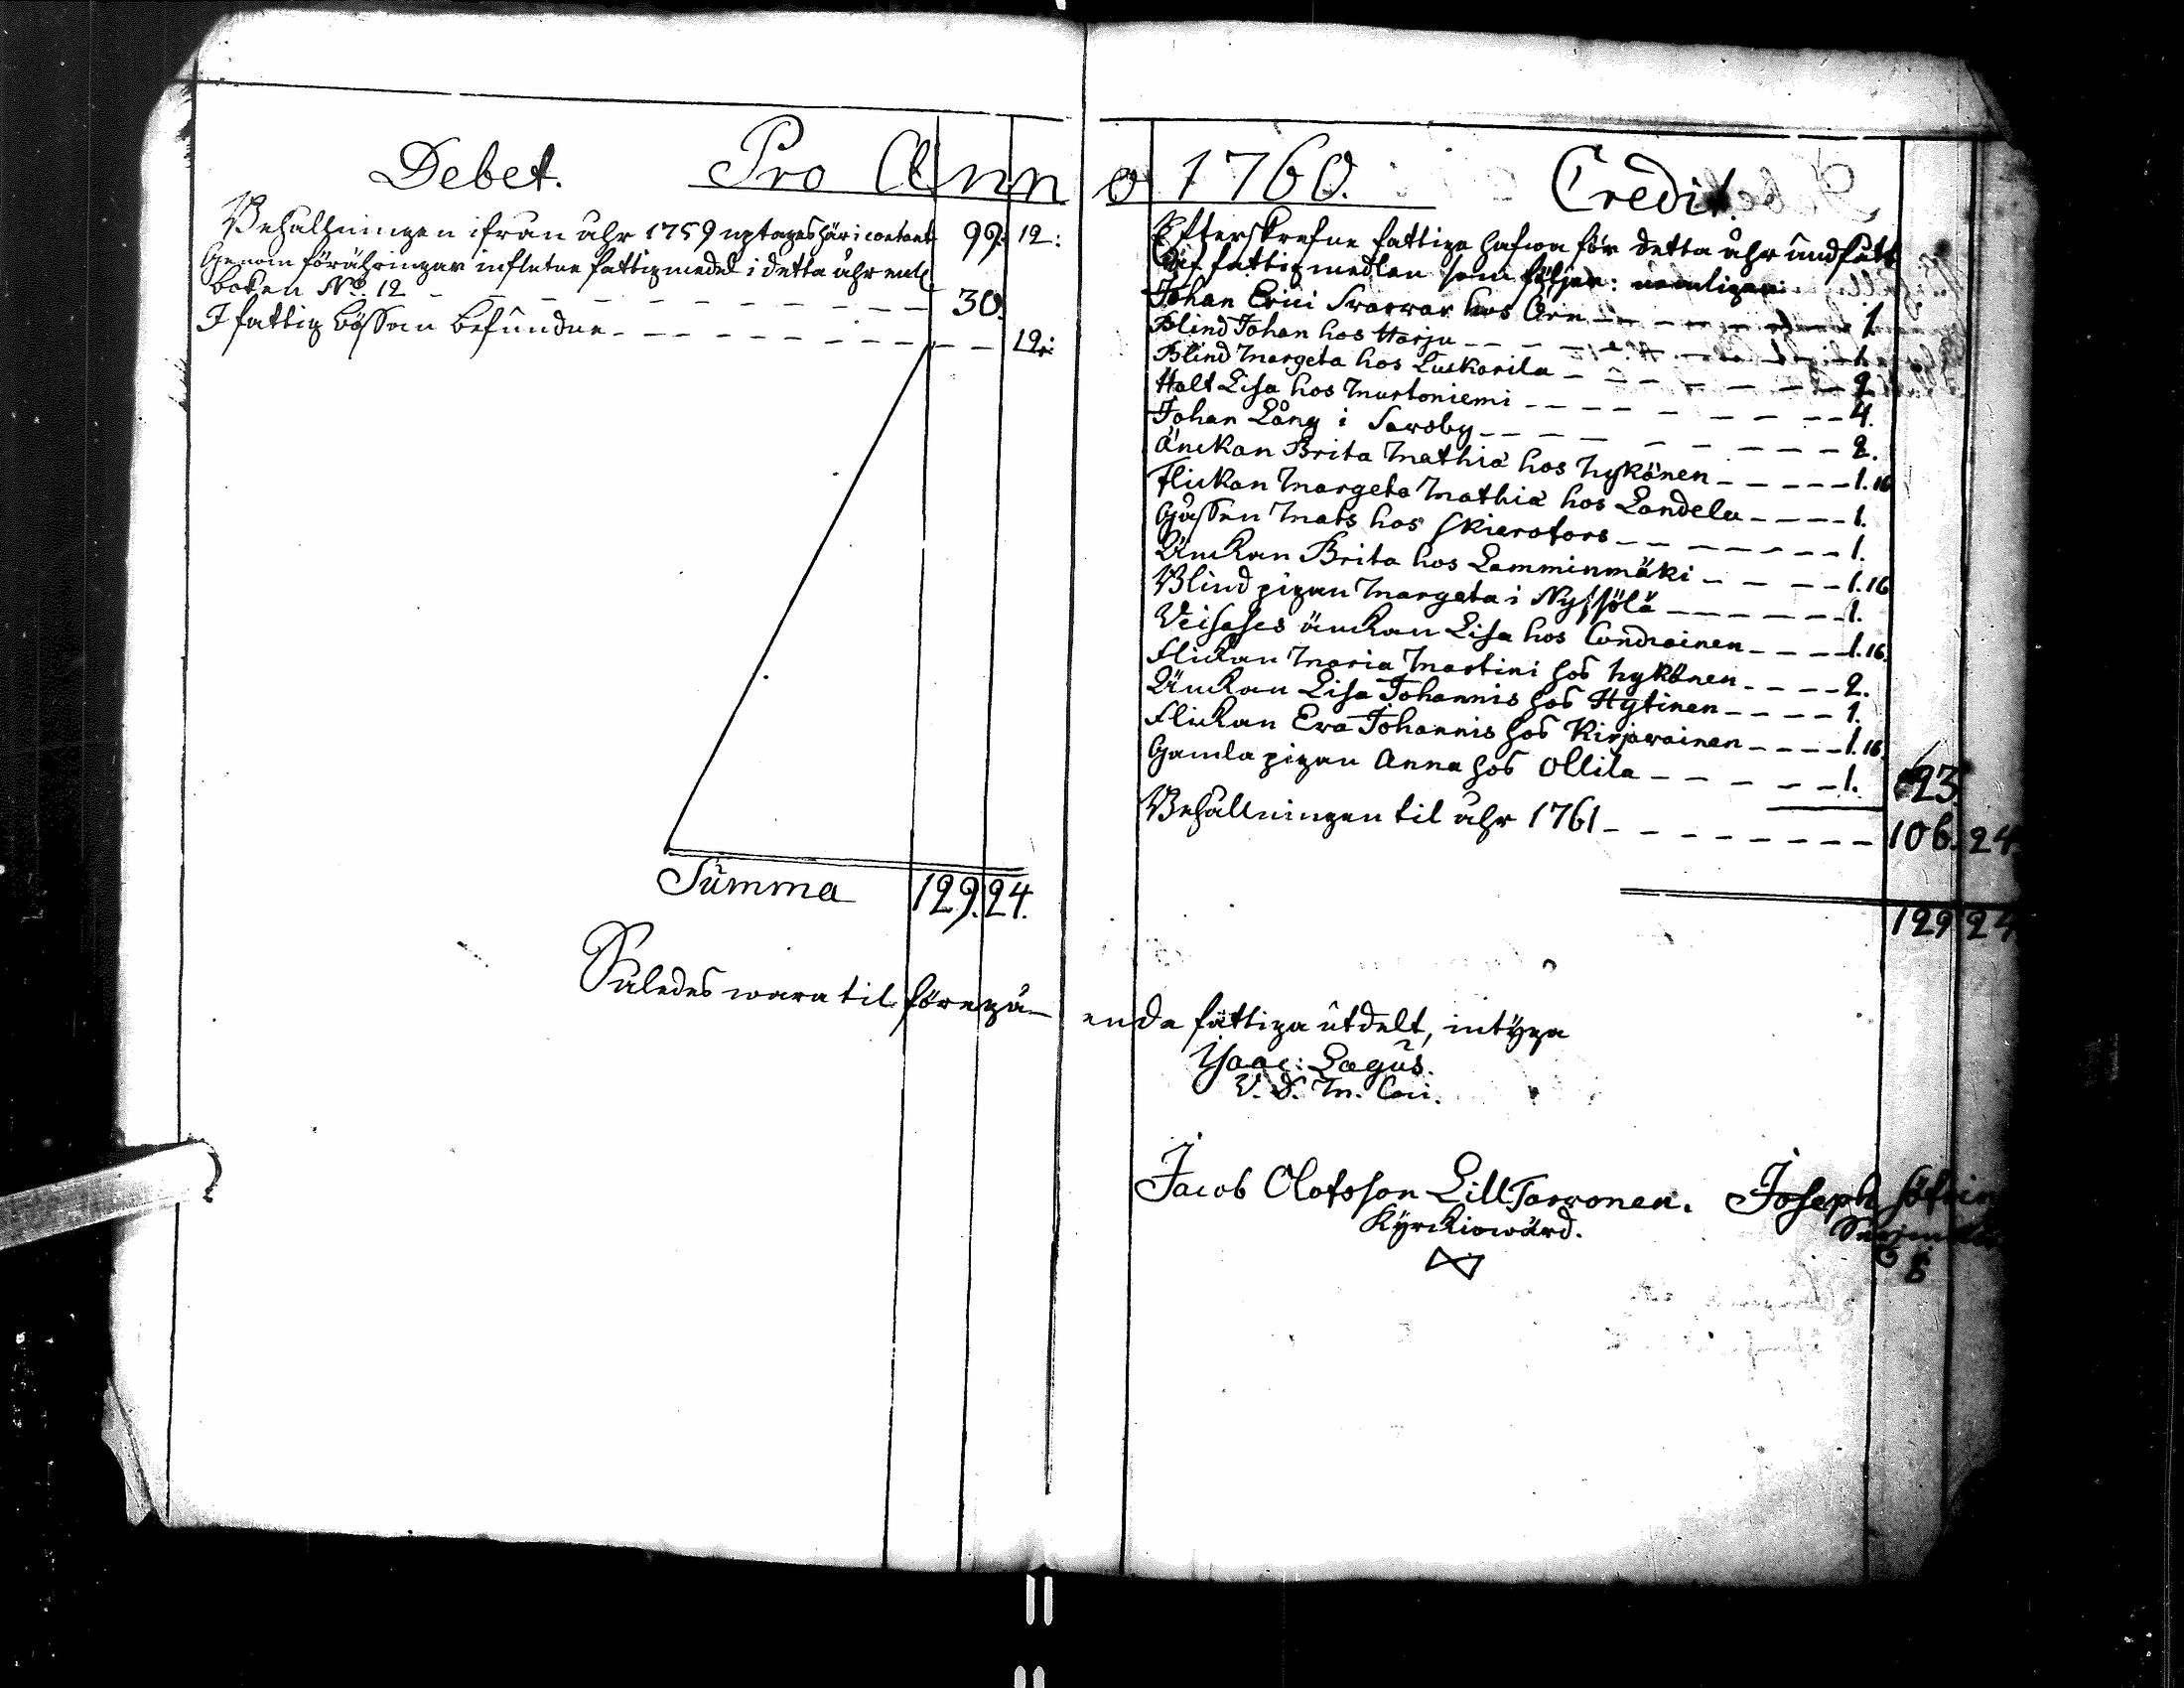 Debet. Pro Anno 1760. Credit.
Behållningen ifrån åhr 1759 uptages här i contant 99: 12:
Genom förähringar influtne fattigmedel i detta åhr enl.
boken No. 12 - - - 30.
I fattig bössan befundne - - - 12:
Summa 129. 24.
Efterskrefne fattige hafwa för detta åhr undfått
af fattigmedlen som följer: nemligen:
Johan Erici hos - - - 1.
Blind Johan hos Harju - - - 1.
Blind Margeta hos Luskarila - - - 2.
Halt Lisa hos Murtoniemi - - - 4.
Johan Lång i Saroby - - - 2.
Änckan Brita Mathiæ hos Hykönen - - - 1. 16
Flickan Margeta Mathiæ hos Landela - - - 1.
Gåssen Mats hos Skierofors - - - 1.
Änckan Brita hos Lamminmäki - - - 1. 16
Blind pigan Margeta i Nyssölä - - - 1.
Veisases änckan Lisa hos Condrainen - - - 1. 16.
Flickan Maria Martini hos Hykönen - - - 2.
Änckan Lisa Johannis hos Hytinen - - - 1.
Flickan Eva Johannis hos Kirjavainen - - - 1. 16.
Gamla pigan Anna hos Ollila - - - 1. 23.
Behållningen til åhr 1761 - - - 106. 24.
129 24.
Således wara til föregående fattiga utdelt, intyga
Isaac: Lagus.
V. D. M.
Jacob Olofsson Lill Tarvonen. Joseph
Kyrckiowärd.